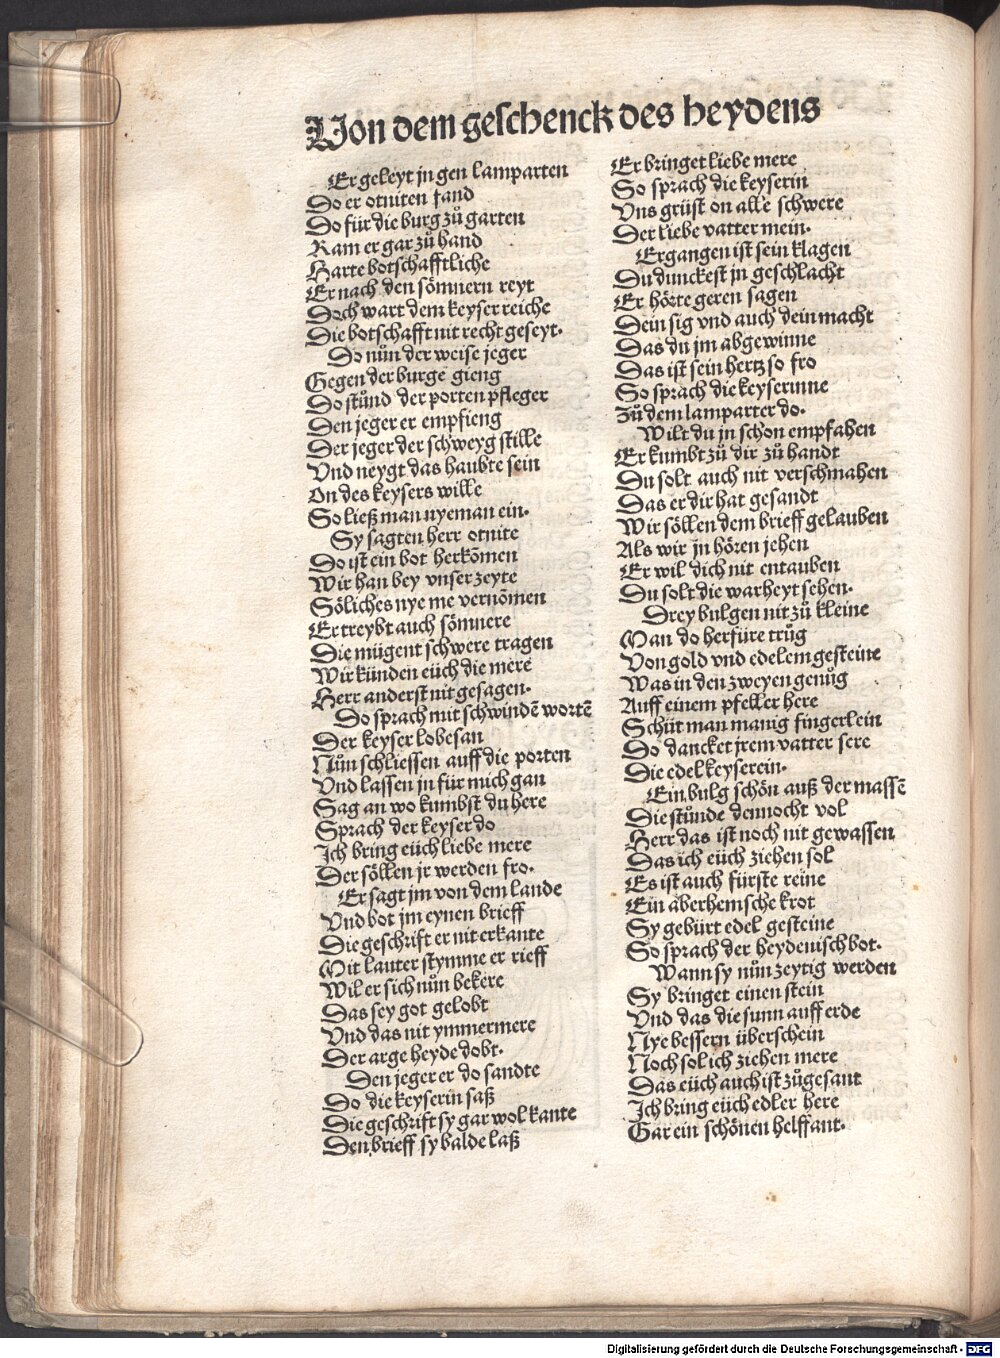 Von dem geschenck des heydens
Er geleyt jn gen lamparten
Do er otniten fand
Do für die burg zů garten
Kam er gar zů hand
Harte botschafftliche
Er nach den sömnern reyt
Doch wart dem keyser reiche
Die botschafft nit recht geseyt.
Do nůn der weise jeger
Gegen der burge gieng
Do stůnd der porten pfleger
Den jeger er empfieng
Der jeger der schweyg stille
Vnd neygt das haubte sein
On des keysers wille
So ließ man nyeman ein.
Sy sagten herr otnite
Do ist ein bot herkōmen
Wir han bey vnser zeyte
Söliches nye me vernōmen
Er treybt auch sömnere
Die mügent schwere tragen
Wir künden eüch die mere
Herr anderst nit gesagen.
Do sprach mit schwindē wortē
Der keyser lobesan
Nůn schliessen auff die porten
Vnd lassen jn für mich gan
Sag an wo kumbst du here
Sprach der keyser do
Ich bring eüch liebe mere
Der söllen jr werden fro.
Er sagt jm von dem lande
Vnd bot jm eynen brieff
Die geschrift er nit erkante
Mit lauter stymme er rieff
Wil er sich nůn bekere
Das sey got gelobt
Vnd das nit ymmermere
Der arge heyde dobt.
Den jeger er do sandte
Do die keyserin saß
Die geschrift sy gar wol kante
Den brieff sy balde laß
Er bringet liebe mere
So sprach die keyserin
Vns grüst on alle schwere
Der liebe vatter mein.
Ergangen ist sein klagen
Du dunckest jn geschlacht
Er hörte geren sagen
Dein sig vnd auch dein macht
Das du jm abgewinne
Das ist sein hertz so fro
So sprach die keyserinne
Zů dem lamparter do.
Wilt du jn schon empfahen
Er kumbt zů dir zů handt
Du solt auch nit verschmahen
Das er dir hat gesandt
Wir söllen dem brieff gelauben
Als wir jn hören jehen
Er wil dich nit entauben
Du solt die warheyt sehen.
Drey bulgen nit zů kleine
Man do herfüre trůg
Von gold vnd edelem gesteine
Was in den zweyen genůg
Auff einem pfeller here
Schüt man manig fingerlein
Do dancket jrem vatter sere
Die edel keyserein.
Ein bulg schön auß der massē
Die stůnde dennocht vol
Herr das ist noch nit gewassen
Das ich eüch ziehen sol
Es ist auch fürste reine
Ein aberhemsche krot
Sy gebürt edel gesteine
So sprach der heydenisch bot.
Wann sy nůn zeytig werden
Sy bringet einen stein
Vnd das die sunn auff erde
Nye bessern überschein
Noch sol ich ziehen mere
Das eüch auch ist zůgesant
Ich bring eüch edler here
Gar ein schönen helffant.
Digitalisierung gefördert durch die Deutsche Forschungsgemeinschaft - DFG